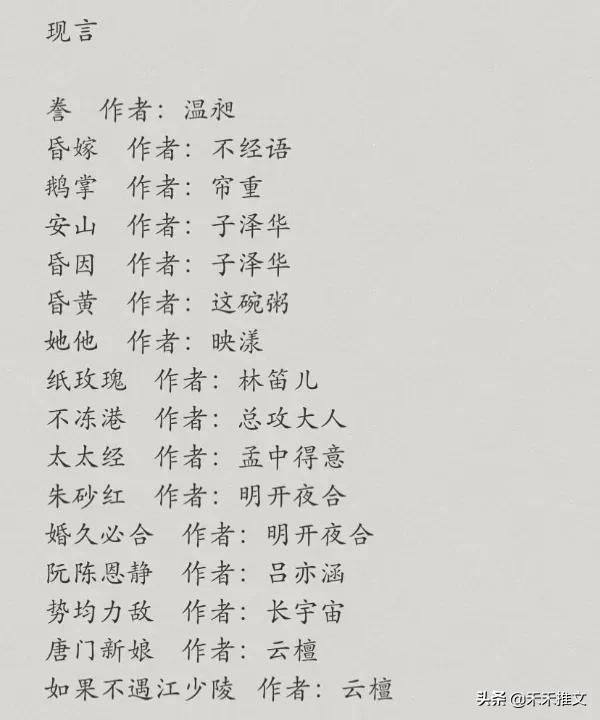 现言
誊 作者：温昶
昏嫁 作者：不经语
鹅掌 作者：帘重
安山 作者：子泽华
昏因 作者：子泽华
昏黄 作者：这碗粥
她他 作者：映漾
纸玫瑰 作者：林笛儿
不冻港 作者：总攻大人
太太经 作者：孟中得意
朱砂红 作者：明开夜合
婚久必合 作者：明开夜合
阮陈恩静 作者：吕亦涵
势均力敌 作者：长宇宙
唐门新娘 作者：云檀
如果不遇江少陵 作者：云檀
头条 @禾禾推文